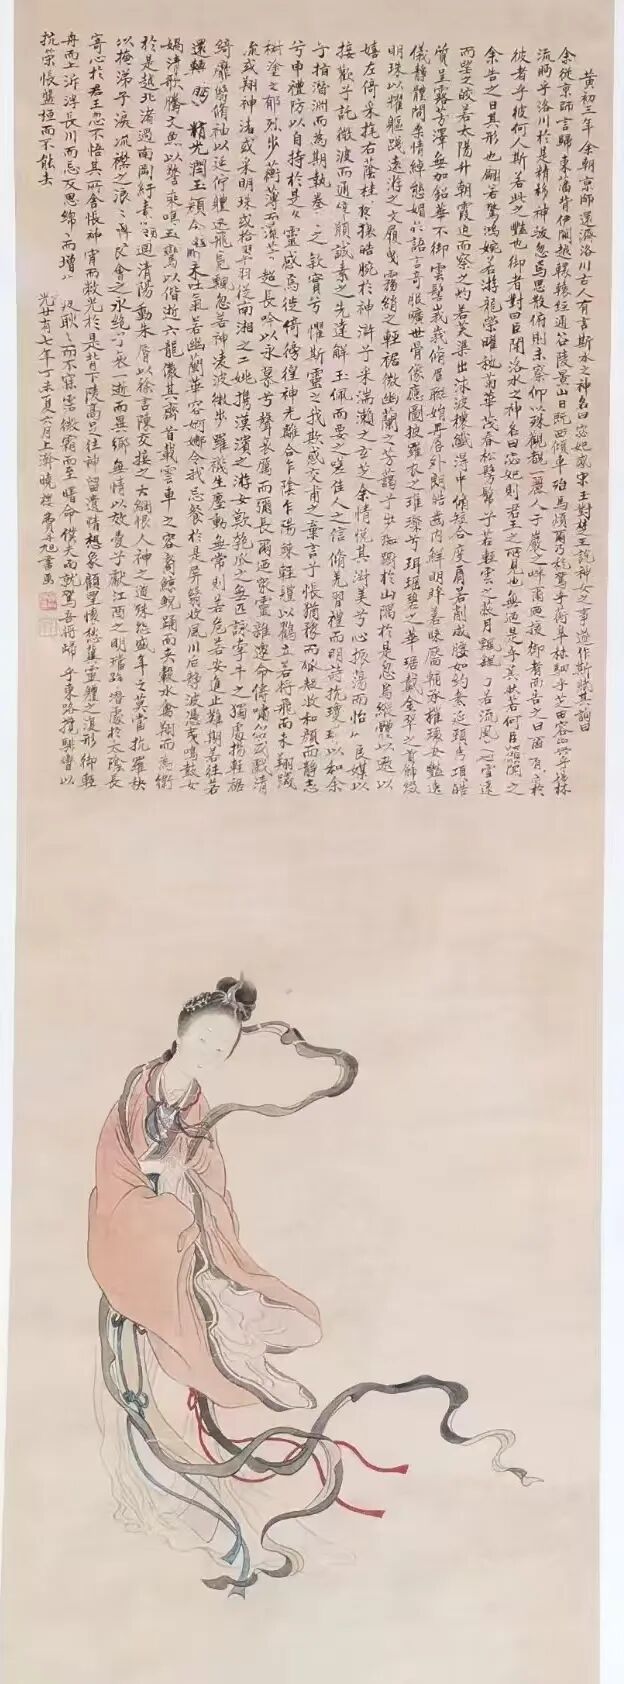 黄初三年余朝京師還濟洛川古人有言斯水之神名曰宓妃感宋玉對楚王說神女之事遂作斯賦其詞曰
余從京師言歸東藩背伊闕越轘轅經通谷陵景山日既西傾車殆馬煩爾乃稅駕乎蘅皐秣駟乎芝田容與乎楊林
流眄乎洛川於是精移神駭忽焉思散俯則未察仰以殊觀覩一麗人于巖之畔爾迺援御者而告之曰爾有覿於
彼者乎彼何人斯若此之艷也御者對曰臣聞洛水之神名曰宓妃則君王之所見也無迺是乎其狀若何臣願聞之
余告之曰其形也翩若驚鴻婉若游龍榮曜秋菊華茂春松髣髴乎若輕雲之蔽月飄颻乎若流風之迴雪遠
而望之皎若太陽升朝霞迫而察之灼若芙渠出淥波穠纖得中修短合度肩若削成腰如約素延頸秀項皓
質呈露芳澤無加鉛華不御雲髻峩峩修眉聯娟丹唇外朗皓齒内鮮明眸善睞靨輔承權瓌姿艷逸
儀靜體閒柔情綽態媚於語言奇服曠世骨像應圖披羅衣之璀璨兮珥瑤碧之華琚戴金翠之首飾綴
明珠以耀軀踐遠游之文履曳霧綃之輕裾微幽蘭之芳藹兮步踟躕於山隅於是忽焉縱體以遨以
嬉左倚采旄右蔭桂旗攘皓腕於神滸兮采湍瀨之玄芝余情悅其淑美兮心振蕩而不怡無良媒以
接歡兮託微波而通辭願誠素之先達解玉佩而要之嗟佳人之信修羌習禮而明詩抗瓊珶以和余
兮指潛淵而為期執眷眷之款實兮懼斯靈之我欺感交甫之棄言兮悵猶豫而狐疑收和顏而靜志
兮申禮防以自持於是洛靈感焉徙倚徬徨神光離合乍陰乍陽竦輕軀以鶴立若將飛而未翔踐
椒塗之郁烈步蘅薄而流芳超長吟以永慕兮聲哀厲而彌長爾迺衆靈雜遝命儔嘯侶或戲清
流或翔神渚或采明珠或拾翠羽從南湘之二姚攜漢濱之游女歎匏瓜之無匹詠牽牛之獨處揚輕袿
綺靡翳修袖以延佇體迅飛鳧飄忽若神淩波微步羅襪生塵動無常則若危若安進止難期若往若
還轉眄精光潤玉顏含辭未吐氣若幽蘭華容婀娜令我忘餐於是屏翳收風川后靜波馮夷鳴鼓女
媧清歌騰文魚以警乘鳴玉鸞以偕逝六龍儼其齊首載雲車之容裔鯨鯢踊而夾轂水禽翔而為衛
於是越北沚過南岡紆素領迴清陽動朱唇以徐言陳交接之大綱恨人神之道殊怨盛年之莫當抗羅袂
以掩涕兮淚流襟之浪浪悼良會之永絕兮哀一逝而異鄉無情以效愛兮獻江南之明璫雖潛處於太陰長
寄心於君王忽不悟其所舍悵神宵而蔽光於是背下陵高足往神留遺情想象顧望懷愁冀靈體之復形御輕
舟而上泝浮長川而忘反思綿綿而增慕夜耿耿而不寐霑微霜而至曙命僕夫而就駕吾將歸乎東路攬騑轡以
抗策悵盤桓而不能去
光廿有七年丁未夏六月上澣曉樓費丹旭書画